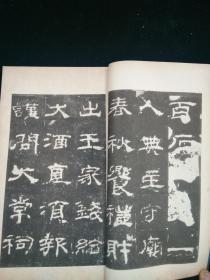 百石一
人典主守廟
春秋饗禮財
出王家錢給
犬酒直須報
謹問大常祠